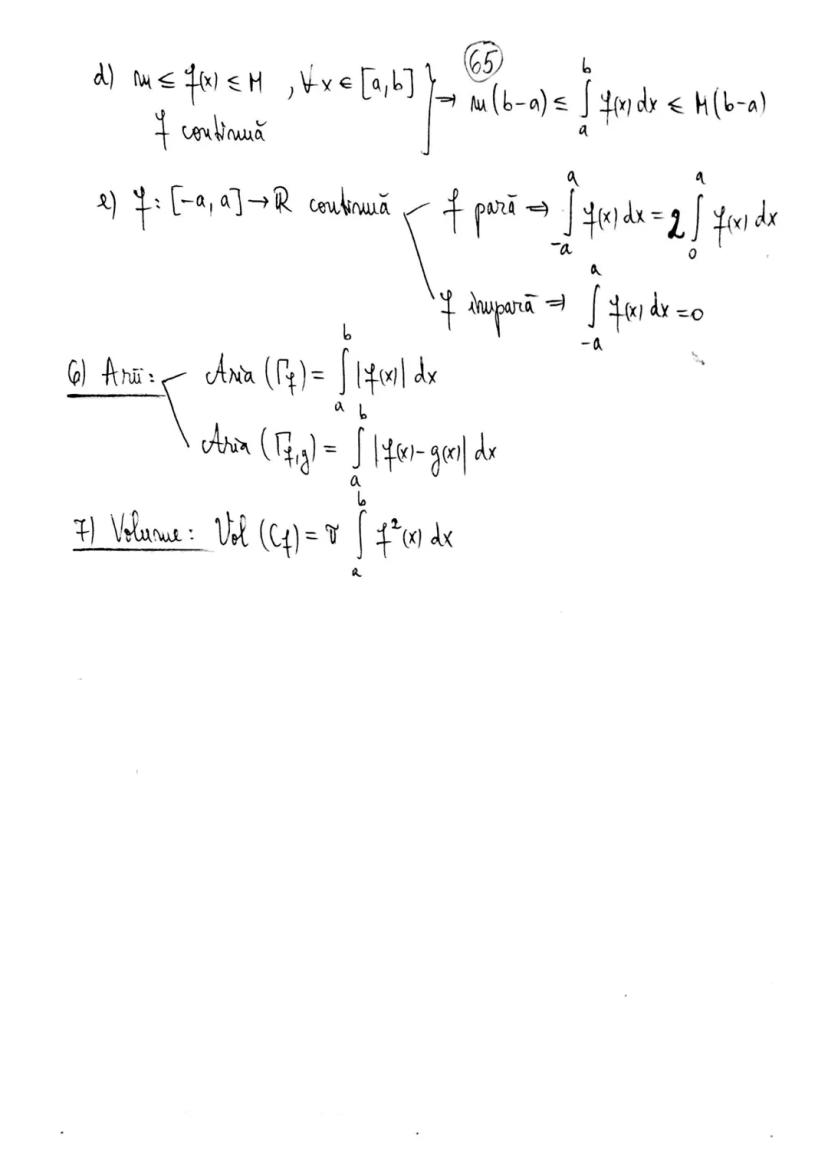 65
d) m ≤ f(x) ≤ M , ∀ x ∈ [a,b] } ⇒ m(b-a) ≤ ∫_a^b f(x) dx ≤ M(b-a)
f continuă
e) f: [-a, a] → ℝ continuă f pară ⇒ ∫_{-a}^a f(x) dx = 2 ∫_0^a f(x) dx
f impară ⇒ ∫_{-a}^a f(x) dx = 0
6) Arii: Aria (Γ_f) = ∫_a^b |f(x)| dx
Aria (Γ_{f,g}) = ∫_a^b |f(x) - g(x)| dx
7) Volume: Vol (C_f) = π ∫_a^b f²(x) dx